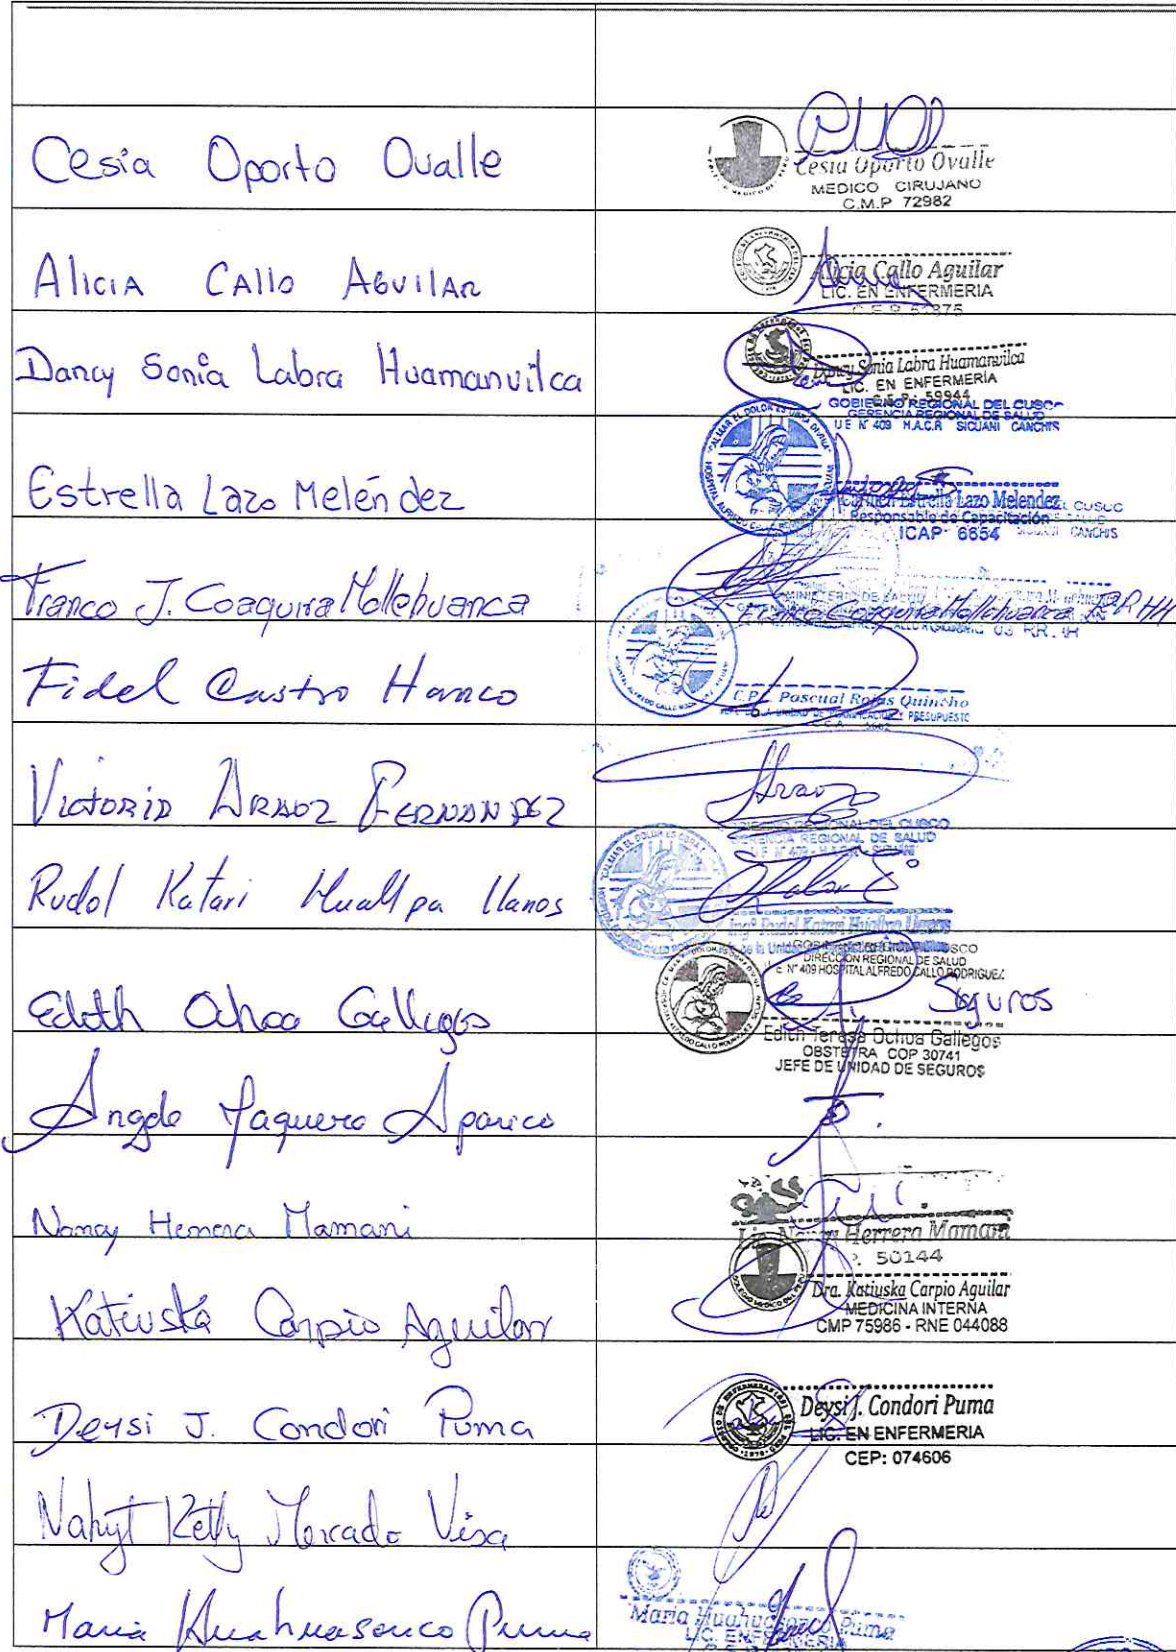 Cesia Oporto Ovalle
Cesia Oporto Ovalle
MEDICO CIRUJANO
C.M.P 72982
Alicia Callo Aguilar
Alicia Callo Aguilar
LIC. EN ENFERMERIA
Dancy Sonia Labra Huamanvilca
Dancy Sonia Labra Huamanvilca
LIC. EN ENFERMERÍA
C.E.P.: 59944
GOBIERNO REGIONAL DEL CUSCO
GERENCIA REGIONAL DE SALUD
U E N° 409 H.A.C.R SICUANI CANCHIS
Estrella Lazo Meléndez
Estrella Lazo Melendez
Responsable de Capacitación
ICAP 6654
Franco J. Coaquira Mollehuanca
Franco Coaquira Mollehuanca RR HH
Fidel Castro Hanco
C.P.C. Pascual Rojas Quincho
Victoria Araoz Fernandez
Araoz
REGIONAL DEL CUSCO
GERENCIA REGIONAL DE SALUD
Rudol Katari Huallpa Llanos
Edith Ochoa Gallegos
DIRECCION REGIONAL DE SALUD
N° 409 HOSPITAL ALFREDO CALLO RODRIGUEZ
Seguros
Edith Teresa Ochoa Gallegos
OBSTETRA COP 30741
JEFE DE UNIDAD DE SEGUROS
Angela Yaquera Aparico
Nancy Herrera Mamani
Lic. Nancy Herrera Mamani
50144
Katiuska Carpio Aguilar
Dra. Katiuska Carpio Aguilar
MEDICINA INTERNA
CMP 75986 - RNE 044088
Deysi J. Condori Puma
Deysi J. Condori Puma
LIC. EN ENFERMERIA
CEP: 074606
Nahyt Ketty Mercado Visa
Maria Huahuasonco Puma
Maria Huahuasonco Puma